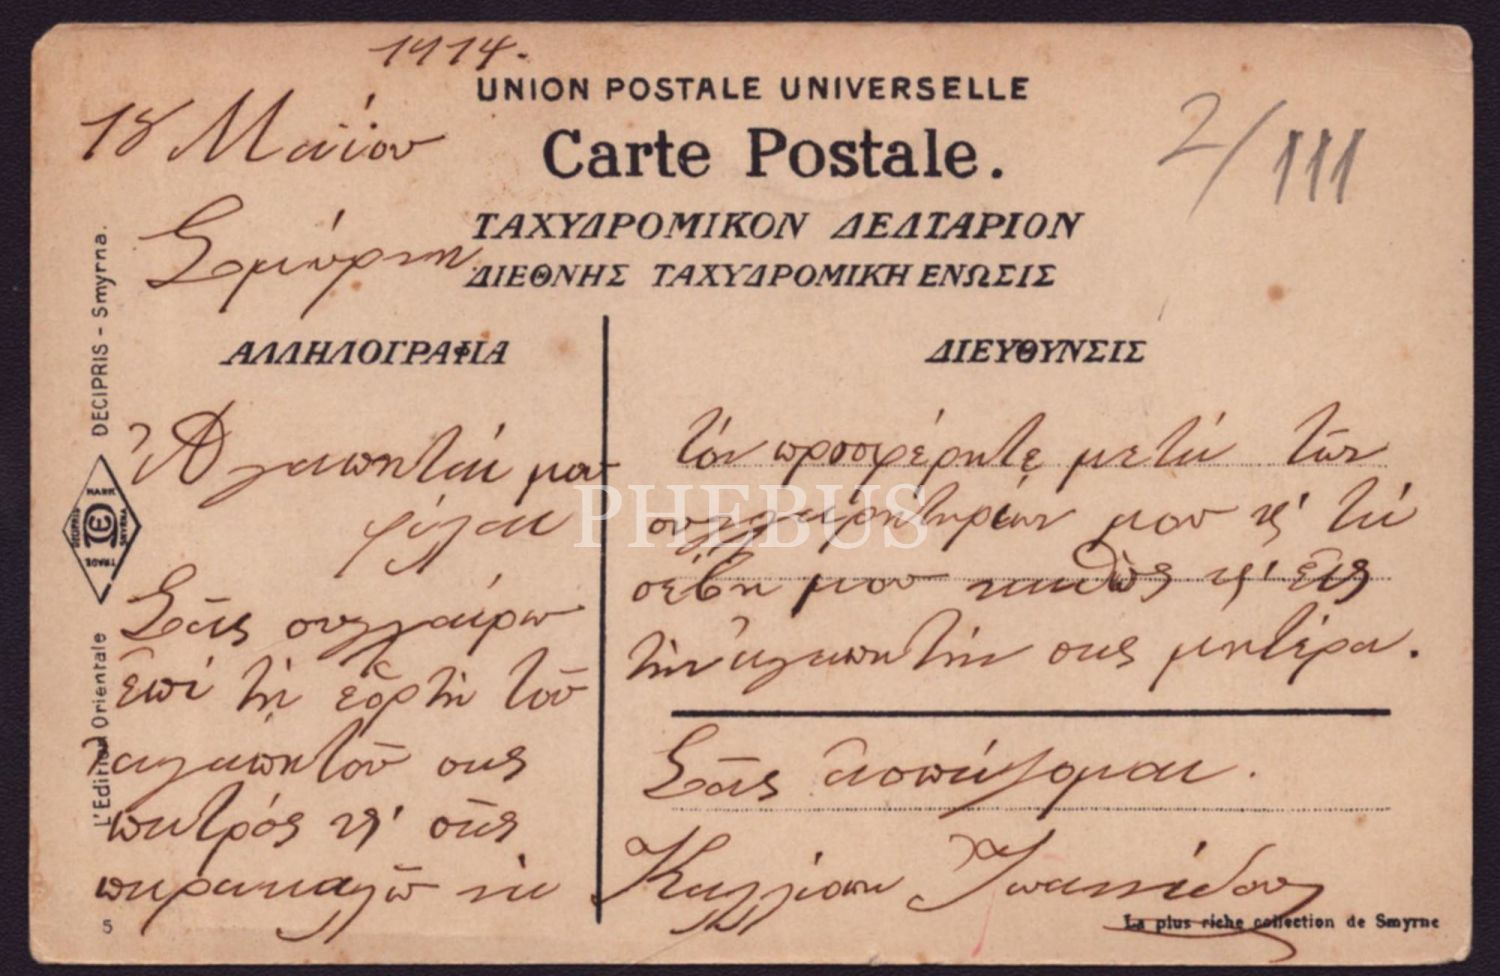 1914.
18 Μαΐου
Σμύρνη
UNION POSTALE UNIVERSELLE
Carte Postale.
ΤΑΧΥΔΡΟΜΙΚΟΝ ΔΕΛΤΑΡΙΟΝ
ΔΙΕΘΝΗΣ ΤΑΧΥΔΡΟΜΙΚΗ ΕΝΩΣΙΣ
2/111
ΑΛΛΗΛΟΓΡΑΦΙΑ
Ἀγαπηταί μου
φίλαι
Σᾶς συγχαίρω
ἐπί τῇ ἑορτῇ τοῦ
ἀγαπητοῦ σας
πατρός κ' σᾶς
παρακαλῶ νὰ
ΔΙΕΥΘΥΝΣΙΣ
τόν προσφέρητε μετά τῶν
συγχαρητηρίων μου κ' τά
σέβη μου καθὼς κ' εἰς
τὴν ἀγαπητήν σας μητέρα.
Σᾶς ἀσπάζομαι.
Καλλιόπη Ἰωαννίδου
L'Edition Orientale
DECIPRIS - Smyrna.
MARK
TRADE
DECIPRIS
SMYRNA
5
La plus riche collection de Smyrne
PHEBUS